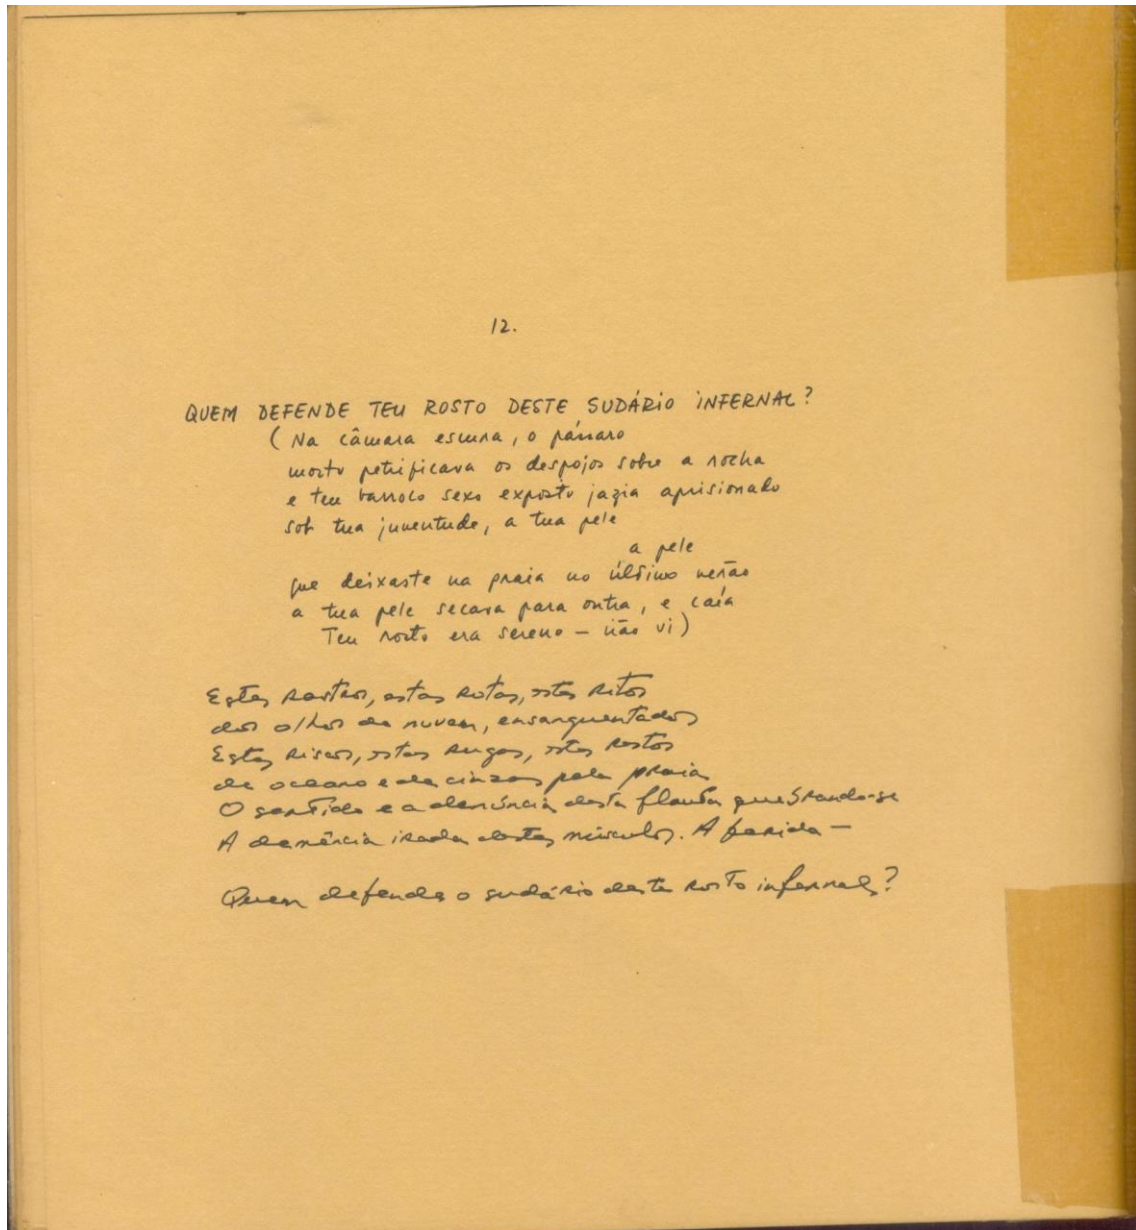 12.
QUEM DEFENDE TEU ROSTO DESTE SUDÁRIO INFERNAL?
(Na câmara escura, o pássaro
morto petrificava os despojos sobre a rocha
e teu barroco sexo exposto jazia aprisionado
sob tua juventude, a tua pele
a pele
que deixaste na praia no último verão
a tua pele secava para outra, e caía
Teu rosto era sereno – não vi)
Estes rastros, estas rotas, estes ritos
dos olhos de nuvem, ensanguentados
Estes riscos, estas rugas, estes restos
de oceano e de cinzas pela praia
O sentido e a denúncia desta flauta quebrando-se
A demência irada destes músculos. A ferida –
Quem defende o sudário deste rosto infernal?